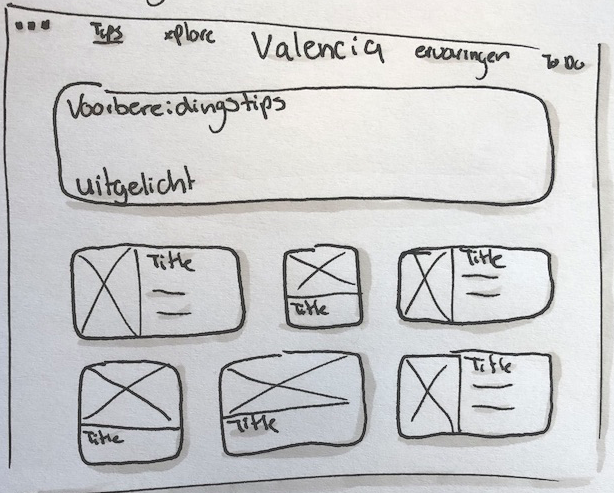 Tips xplore Valencia ervaringen To Do
Voorbereidingstips
uitgelicht
Title
Title
Title
Title
Title
Title